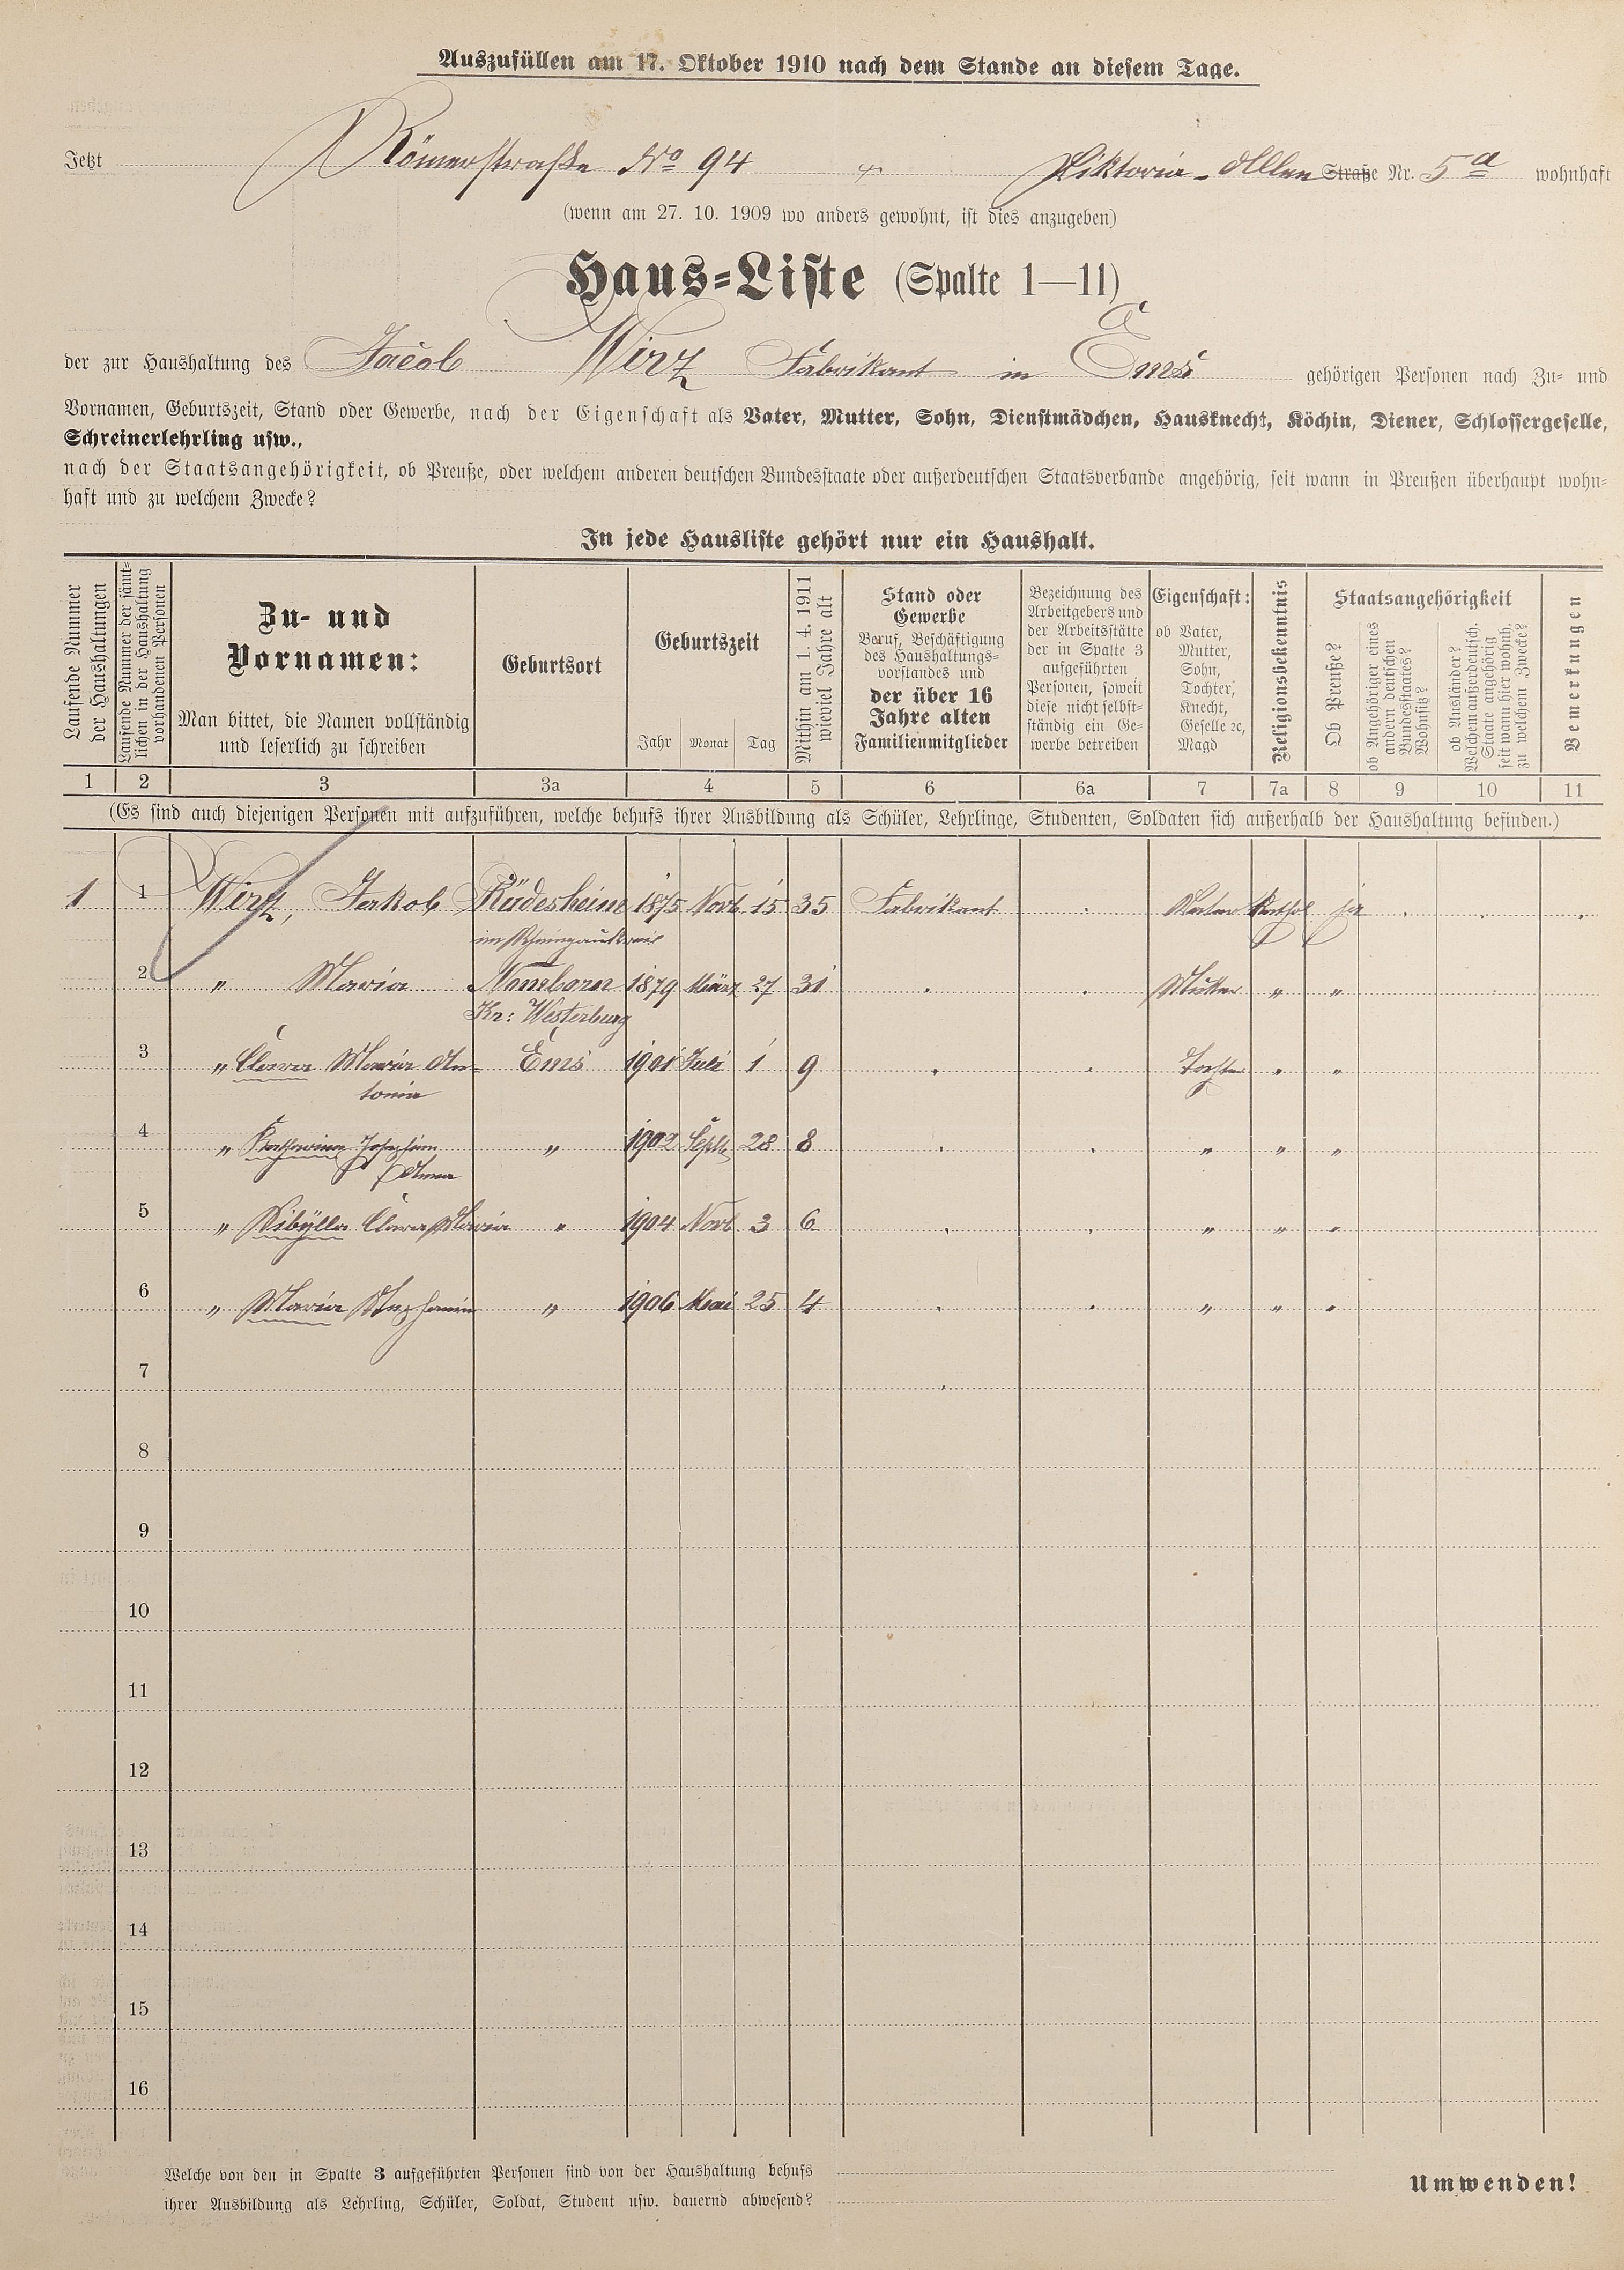 Auszufüllen am 17. Oktober 1910 nach dem Stande an diesem Tage.
Jetzt Römerstraße No 94 Viktoria-Allee Straße Nr. 5a wohnhaft
(wenn am 27. 10. 1909 wo anders gewohnt, ist dies anzugeben)
Haus-Liste (Spalte 1—11)
der zur Haushaltung des Jacob Wirz Fabrikant in Ems gehörigen Personen nach Zu- und
Vornamen, Geburtszeit, Stand oder Gewerbe, nach der Eigenschaft als Vater, Mutter, Sohn, Dienstmädchen, Hausknecht, Köchin, Diener, Schlossergeselle,
Schreinerlehrling usw.,
nach der Staatsangehörigkeit, ob Preuße, oder welchem anderen deutschen Bundesstaate oder außerdeutschen Staatsverbande angehörig, seit wann in Preußen überhaupt wohn-
haft und zu welchem Zwecke?
In jede Hausliste gehört nur ein Haushalt.
Laufende Nummer
der Haushaltungen
Laufende Nummer der sämt-
lichen in der Haushaltung
vorhandenen Personen
Zu- und
Vornamen:
Man bittet, die Namen vollständig
und leserlich zu schreiben
Geburtsort
Geburtszeit
Jahr Monat Tag
Mithin am 1. 4. 1911
wieviel Jahre alt
Stand oder
Gewerbe
Beruf, Beschäftigung
des Haushaltungs-
vorstandes und
der über 16
Jahre alten
Familienmitglieder
Bezeichnung des
Arbeitgebers und
der Arbeitsstätte
der in Spalte 3
aufgeführten
Personen, soweit
diese nicht selbst-
ständig ein Ge-
werbe betreiben
Eigenschaft:
ob Vater,
Mutter,
Sohn,
Tochter,
Knecht,
Geselle ꝛc,
Magd
Religionsbekenntnis
Staatsangehörigkeit
Ob Preuße?
ob Angehöriger eines
andern deutschen
Bundesstaates?
Wohnsitz?
ob Ausländer?
Welchem außerdeutsch.
Staate angehörig
seit wann hier wohnh.
zu welchem Zwecke?
Bemerkungen
1 2 3 3a 4 5 6 6a 7 7a 8 9 10 11
(Es sind auch diejenigen Personen mit aufzuführen, welche behufs ihrer Ausbildung als Schüler, Lehrlinge, Studenten, Soldaten sich außerhalb der Haushaltung befinden.)
1 1 Wirz, Jakob Rüdesheim 1875 Novb 15 35 Fabrikant Vater Kathol ja
im Rheingaukreis
2 " Maria Nomborn 1879 März 27 31 Mutter " "
Kr: Westerburg
3 " Clara Maria An- Ems 1901 Juli 1 9 Tochter " "
tonia
4 " Katharina Josephine " 1902 Septb 28 8 " " "
Anna
5 " Sibylla Clara Maria " 1904 Novb 3 6 " " "
6 " Maria Stephanie " 1906 Mai 25 4 " " "
7
8
9
10
11
12
13
14
15
16
Welche von den in Spalte 3 aufgeführten Personen sind von der Haushaltung behufs
ihrer Ausbildung als Lehrling, Schüler, Soldat, Student usw. dauernd abwesend?
Umwenden!